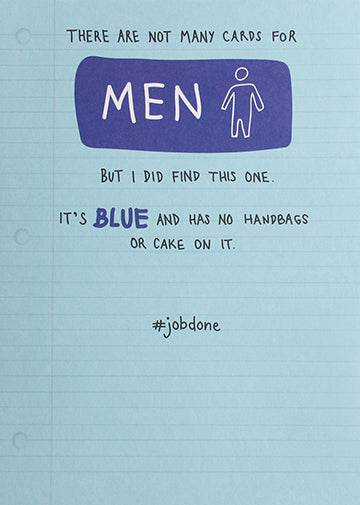 THERE ARE NOT MANY CARDS FOR
MEN
BUT I DID FIND THIS ONE.
IT'S BLUE AND HAS NO HANDBAGS
OR CAKE ON IT.
#jobdone